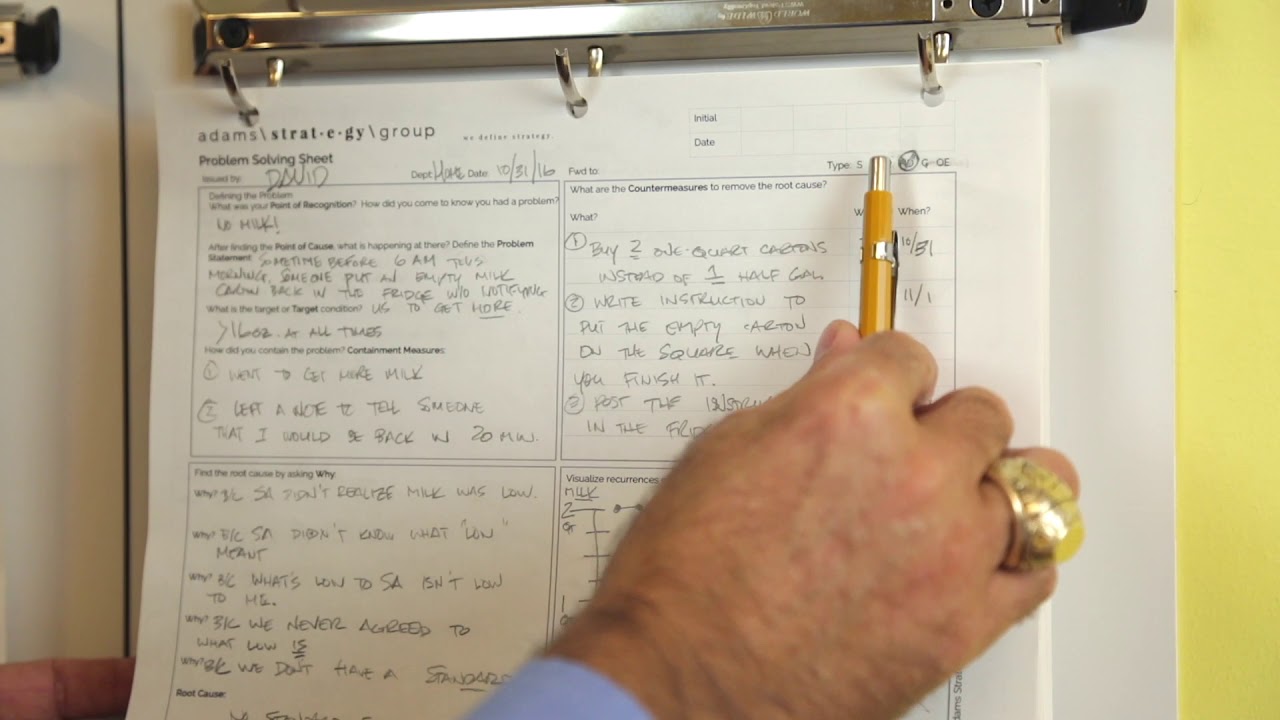 adams\strat·e·gy\group
we define strategy.
Initial
Date
Problem Solving Sheet
Issued by: DAVID
Dept: HOME Date: 10/31/16
Fwd to:
Type: S
G OE
Defining the Problem
What was your Point of Recognition? How did you come to know you had a problem?
NO MILK!
After finding the Point of Cause, what is happening at there? Define the Problem
Statement: SOMETIME BEFORE 6 AM THIS
MORNING, SOMEONE PUT AN EMPTY MILK
CARTON BACK IN THE FRIDGE W/O NOTIFYING
What is the target or Target condition? US TO GET MORE.
>16OZ. AT ALL TIMES
How did you contain the problem? Containment Measures:
① WENT TO GET MORE MILK
② LEFT A NOTE TO TELL SOMEONE
THAT I WOULD BE BACK IN 20 MIN.
What are the Countermeasures to remove the root cause?
What?
When?
① BUY 2 ONE-QUART CARTONS
10/31
INSTEAD OF 1 HALF GAL
② WRITE INSTRUCTION TO
11/1
PUT THE EMPTY CARTON
ON THE SQUARE WHEN
YOU FINISH IT.
③ POST THE
IN THE
Find the root cause by asking Why:
Why? B/C SA DIDN'T REALIZE MILK WAS LOW.
Why? B/C SA DIDN'T KNOW WHAT "LOW"
MEANT
Why? B/C WHAT'S LOW TO SA ISN'T LOW
TO ME.
Why? B/C WE NEVER AGREED TO
WHAT LOW IS
Why? B/C WE DON'T HAVE A
Root Cause:
Visualize recurrences
MILK
2
QT
1